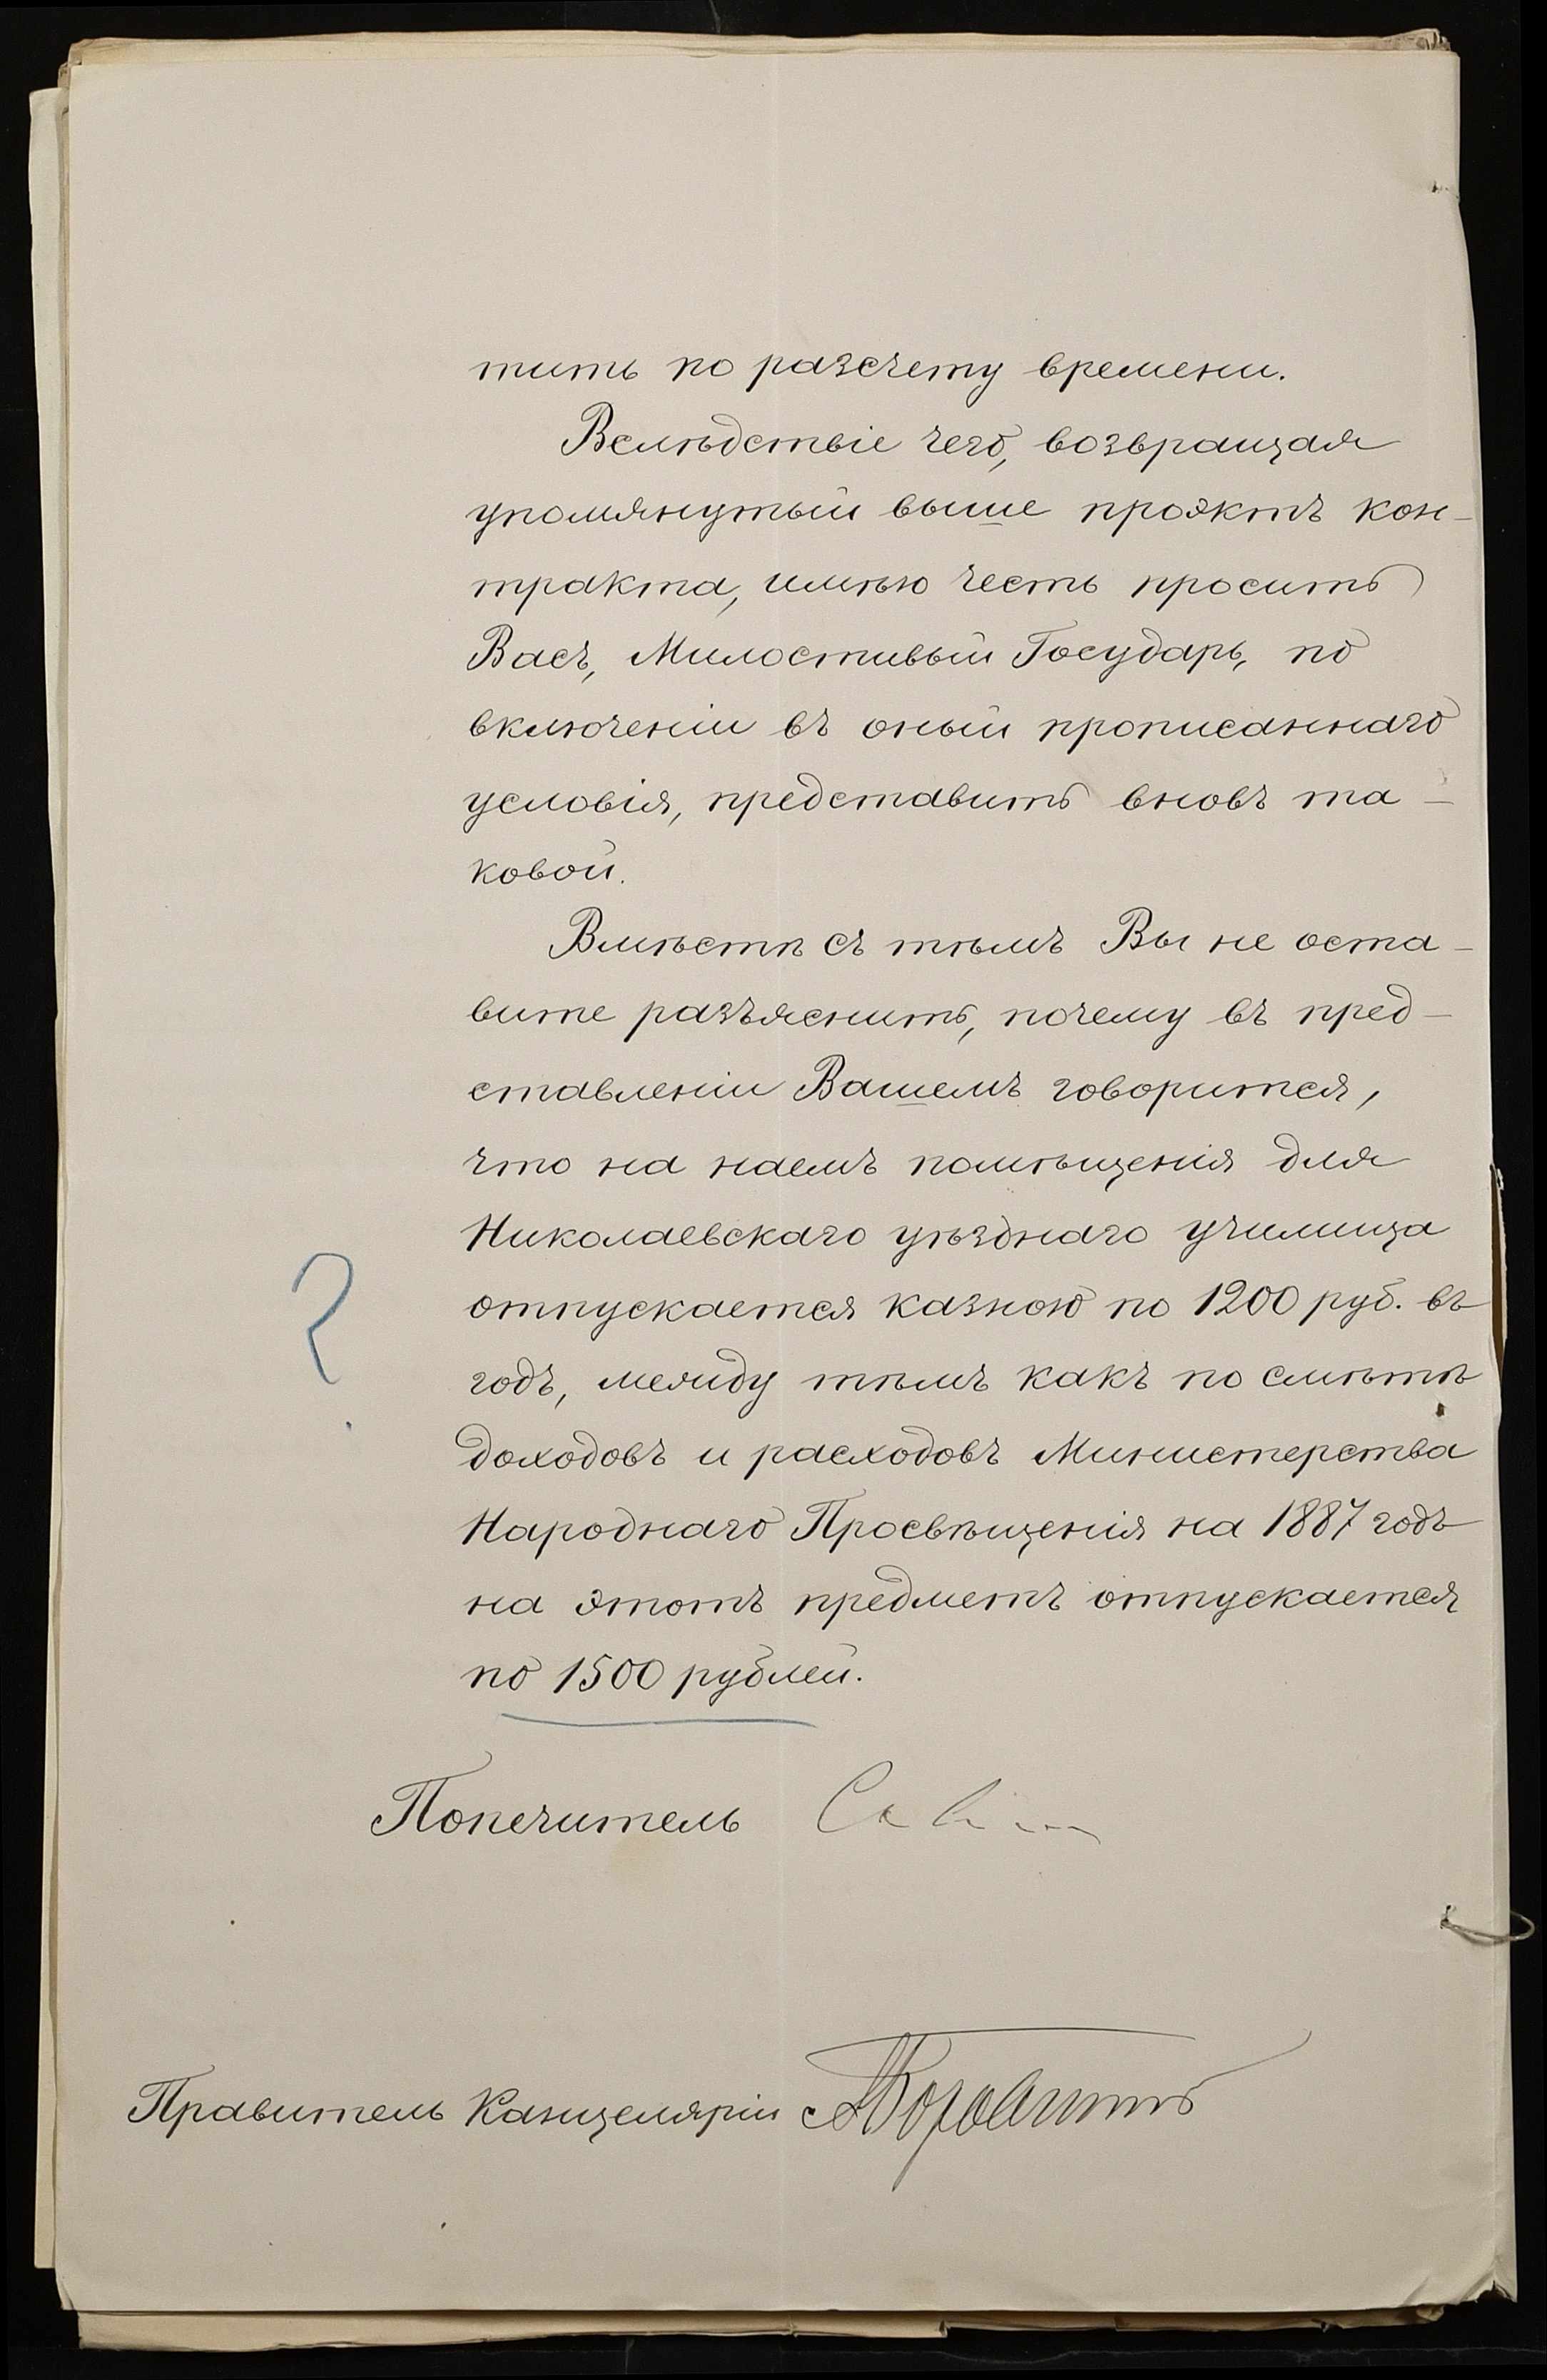 тить по разсчету времени.
Вслѣдствіе чего, возвращая
упомянутый выше проэктъ кон-
тракта, имѣю честь просить
Васъ, Милостивый Государь, по
включеніи въ оный прописаннаго
условія, представить вновь та-
ковой.
Вмѣстѣ съ тѣмъ Вы не оста-
вите разъяснить, почему въ пред-
ставленіи Вашемъ говорится,
что на наемъ помѣщенія для
Николаевскаго уѣзднаго училища
?
отпускается казною по 1200 руб. въ
годъ, между тѣмъ какъ по смѣтѣ
доходовъ и расходовъ Министерства
Народнаго Просвѣщенія на 1887 годъ
на этотъ предметъ отпускается
по 1500 рублей.
Попечитель
Правитель Канцеляріи